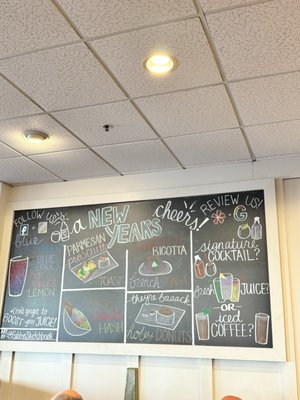 FOLLOW US!
blue
LEMON
Don't forget to
BOOST your JUICE!
a NEW YEARS cheers!
PARMESAN
prosciutto
TOAST
RICOTTA
FRENCH
TOAST
HASH
they're baaack
holey DONUTS
REVIEW US!
G
signature
COCKTAIL?
fresh JUICE?
-OR-
iced
COFFEE?